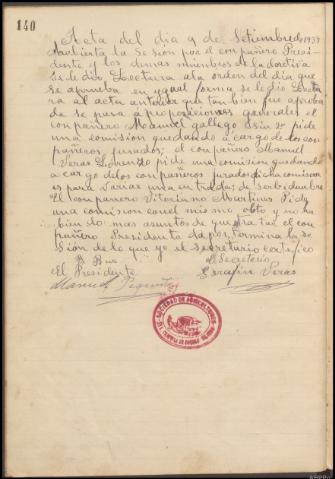 140
Acta del dia 9 de Setiembre 1933
Avabierta la Sesión por el conpañero Presi
dente y los demas miembros de la diretiva
se dio Lectura ala orden del dia que
se aprueba en ygual forma se le dio Lectu
ra al acta anterior que tanbien fue aprobada
se pasa á proposiciones generales el
conpañero Manuel gallego pide
una comision quedando a cargo de los con
pañeros jurados; el conpañero Manuel
Veras Lorenzo pide una comision quedando
a cargo delos conpañeros jurados dicha comision
es para varias entradas de
El conpañero Vitoriano Martines Pide
una comision conel mismo obto y no ha
biento mas asuntos de que tratar el con
pañero Presidente da por termina la se
sión de lo que yo el Secretario certifico
Bº Bueº
El Presidente
El Secreterio
Manuel
Serafin Veras
SOCIEDAD DE AGRICULTORES